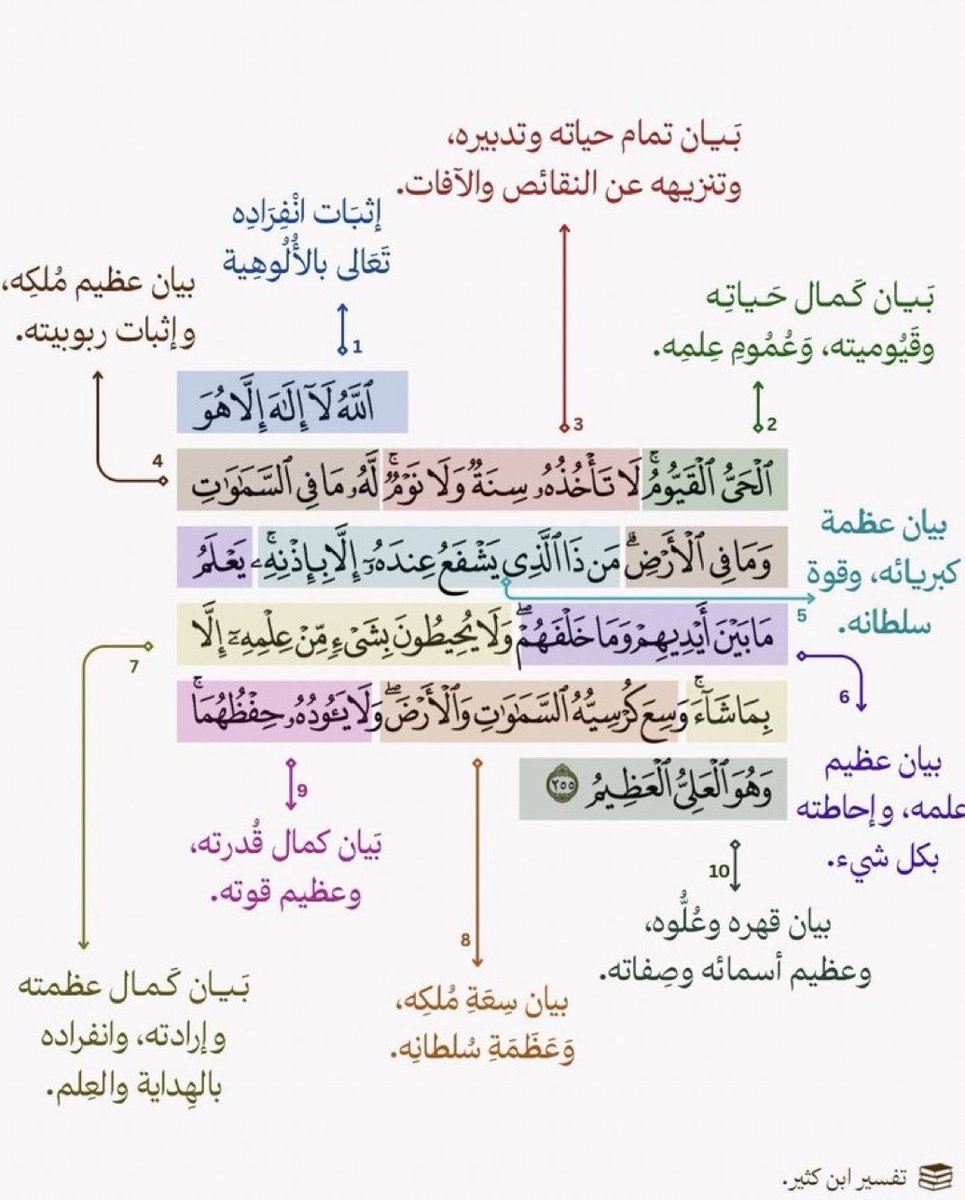 بَيان تمام حياته وتدبيره،
وتنزيهه عن النقائص والآفات.
إثبَات انْفِرَادِه
تَعَالى بالأُلُوهِية
بيان عظيم مُلكِه،
وإثبات ربوبيته.
بَيان كَمال حَياتِه
وقَيُوميته، وَعُمُومِ عِلمِه.
1
2
3
4
ٱللَّهُ لَآ إِلَٰهَ إِلَّا هُوَ
ٱلْحَىُّ ٱلْقَيُّومُ ۚ لَا تَأْخُذُهُۥ سِنَةٌ وَلَا نَوْمٌ ۚ لَّهُۥ مَا فِى ٱلسَّمَٰوَٰتِ
وَمَا فِى ٱلْأَرْضِ ۗ مَن ذَا ٱلَّذِى يَشْفَعُ عِندَهُۥٓ إِلَّا بِإِذْنِهِۦ ۚ يَعْلَمُ
مَا بَيْنَ أَيْدِيهِمْ وَمَا خَلْفَهُمْ ۖ وَلَا يُحِيطُونَ بِشَىْءٍ مِّنْ عِلْمِهِۦٓ إِلَّا
بِمَا شَآءَ ۚ وَسِعَ كُرْسِيُّهُ ٱلسَّمَٰوَٰتِ وَٱلْأَرْضَ ۖ وَلَا يَـُٔودُهُۥ حِفْظُهُمَا ۚ
وَهُوَ ٱلْعَلِىُّ ٱلْعَظِيمُ ٢٥٥
بيان عظمة
كبريائه، وقوة
سلطانه.
5
6
7
بيان عظيم
علمه، وإحاطته
بكل شيء.
9
بَيان كمال قُدرته،
وعظيم قوته.
10
بيان قهره وعُلُّوه،
وعظيم أسمائه وصِفاته.
8
بيان سِعَةِ مُلكِه،
وَعَظَمَةِ سُلطانِه.
بَيان كَمال عظمته
وإرادته، وانفراده
بالهِداية والعِلم.
تفسير ابن كثير.